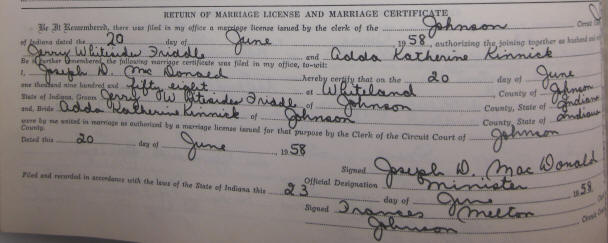 RETURN OF MARRIAGE LICENSE AND MARRIAGE CERTIFICATE
Be It Remembered, there was filed in my office a marriage license issued by the clerk of the Johnson Circuit
of Indiana dated the 20 day of June 1958, authorizing the joining together as husband and
Jerry Whitesides Friddle and Adda Katherine Kinnick
Be it further Remembered, the following marriage certificate was filed in my office, to-wit:
I, Joseph D. Mc Donald hereby certify that on the 20 day of June
one thousand nine hundred and fifty eight at Whiteland County of Johnson
State of Indiana, Groom Jerry Whitesides Friddle of Johnson County, State of Indiana
and, Bride Adda Katherine Kinnick of Johnson County, State of Indiana
were by me united in marriage as authorized by a marriage license issued for that purpose by the Clerk of the Circuit Court of Johnson
County.
Dated this 20 day of June 1958
Signed Joseph D. Mac Donald
Official Designation Minister
Filed and recorded in accordance with the laws of the State of Indiana this 23 day of June 1958
Signed Frances Melton
Johnson Circuit